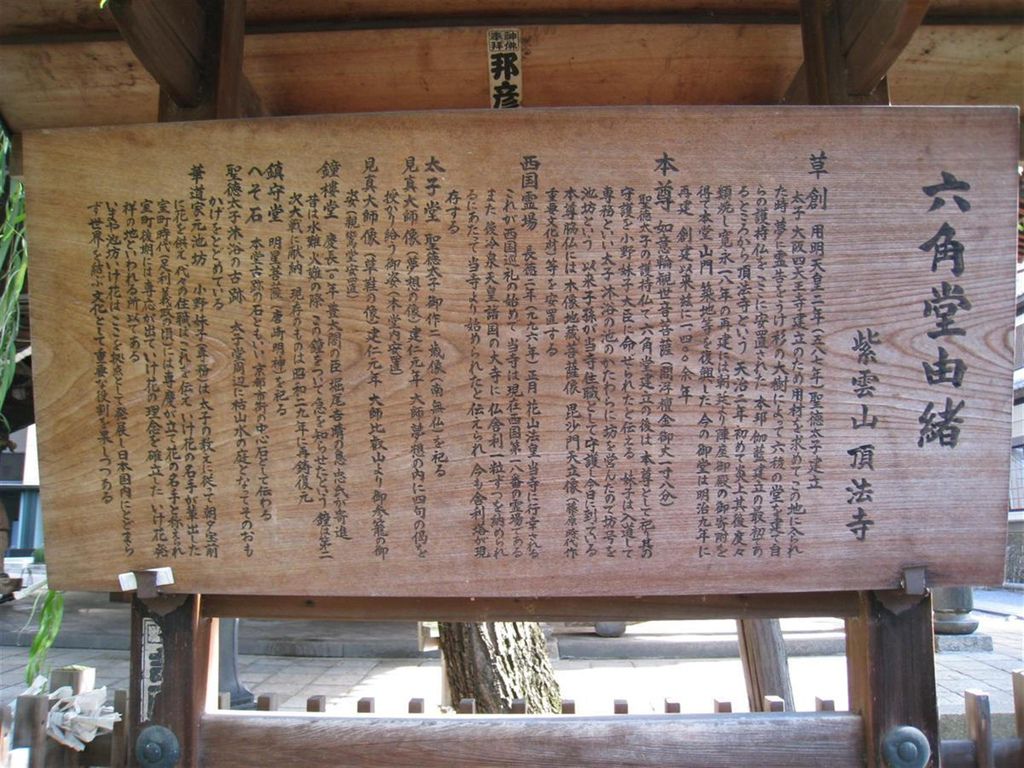 神佛
奉拝
邦彦
六角堂由緒
紫雲山 頂法寺
草創 用明天皇二年(五八七年)聖徳太子建立
太子 大阪四天王寺建立のための用材を求めてこの地に入られ
た時 夢に霊告をうけ 杉の大樹によって六稜の堂を建て自
らの護持仏をここに安置された 本邦伽藍建立の最初であ
るところから頂法寺という 天治二年初めて炎上 其後度々
類焼 寛永一八年の再建には朝廷より陣座御殿の御寄附を
得て本堂 山門 築地等を復興した 今の御堂は明治九年に
再建 創建以来玆に一四〇〇余年
本尊 如意輪観世音菩薩(閻浮檀金御丈一寸八分)
聖徳太子の護持仏で六角堂建立の後は 本尊として祀り其の
守護を小野妹子大臣に命ぜられたと伝える 妹子は入道して
専務といい 太子沐浴の池のかたわらに坊を営んだので坊号を
池坊という 以来子孫が当寺住職として守護し今日に到っている
本尊脇仏には 木像地蔵菩薩像 毘沙門天立像(藤原時代作
重要文化財)等を安置する
西国霊場 長徳二年(九九六年)正月 花山法皇当寺に行幸される
これが西国巡礼の始めで 当寺は現在西国第一八番の霊場である
また 後冷泉天皇 諸国の大寺に 仏舎利一粒ずつを納められ
るにあたって 当寺より始められたと伝えられ 今も舎利塔が現
存する
太子堂 聖徳太子御作 二歳像(南無仏)を祀る
見真大師像(夢想の像)建仁元年 大師夢想の内に四句の偈を
授かり給う御姿(本堂内安置)
見真大師像(草鞋の像)建仁元年 大師比叡山より御参籠の御
姿(親鸞堂安置)
鐘樓堂 慶長一〇年 豊太閤の臣 堀尾吉晴の息忠氏が寄進
昔は水難 火難の際 この鐘をついて急を知らせたという 鐘は第二
次大戦に献納 現存のものは昭和二九年に再鋳復元
鎮守堂 明星菩薩(唐崎明神)を祀る
へそ石 本堂古跡の石ともいい 京都市街の中心石として伝わる
聖徳太子沐浴の古跡 太子堂周辺に枯山水の庭となってそのおも
かげをとどめている
華道家元池坊 小野妹子(専務)は太子の教えに従って朝夕宝前
に花を供え 代々の住職はこれを伝え いけ花の名手が輩出した
室町時代(足利義政の頃)には専慶が立て花の名手と称えられ
室町後期には専応が出ていけ花の理念を確立した いけ花発
祥の地といわれる所以である
いまや池坊いけ花は ここを拠点として発展し 日本国内にとどまら
ず世界を結ぶ文化として重要な役割を果しつつある